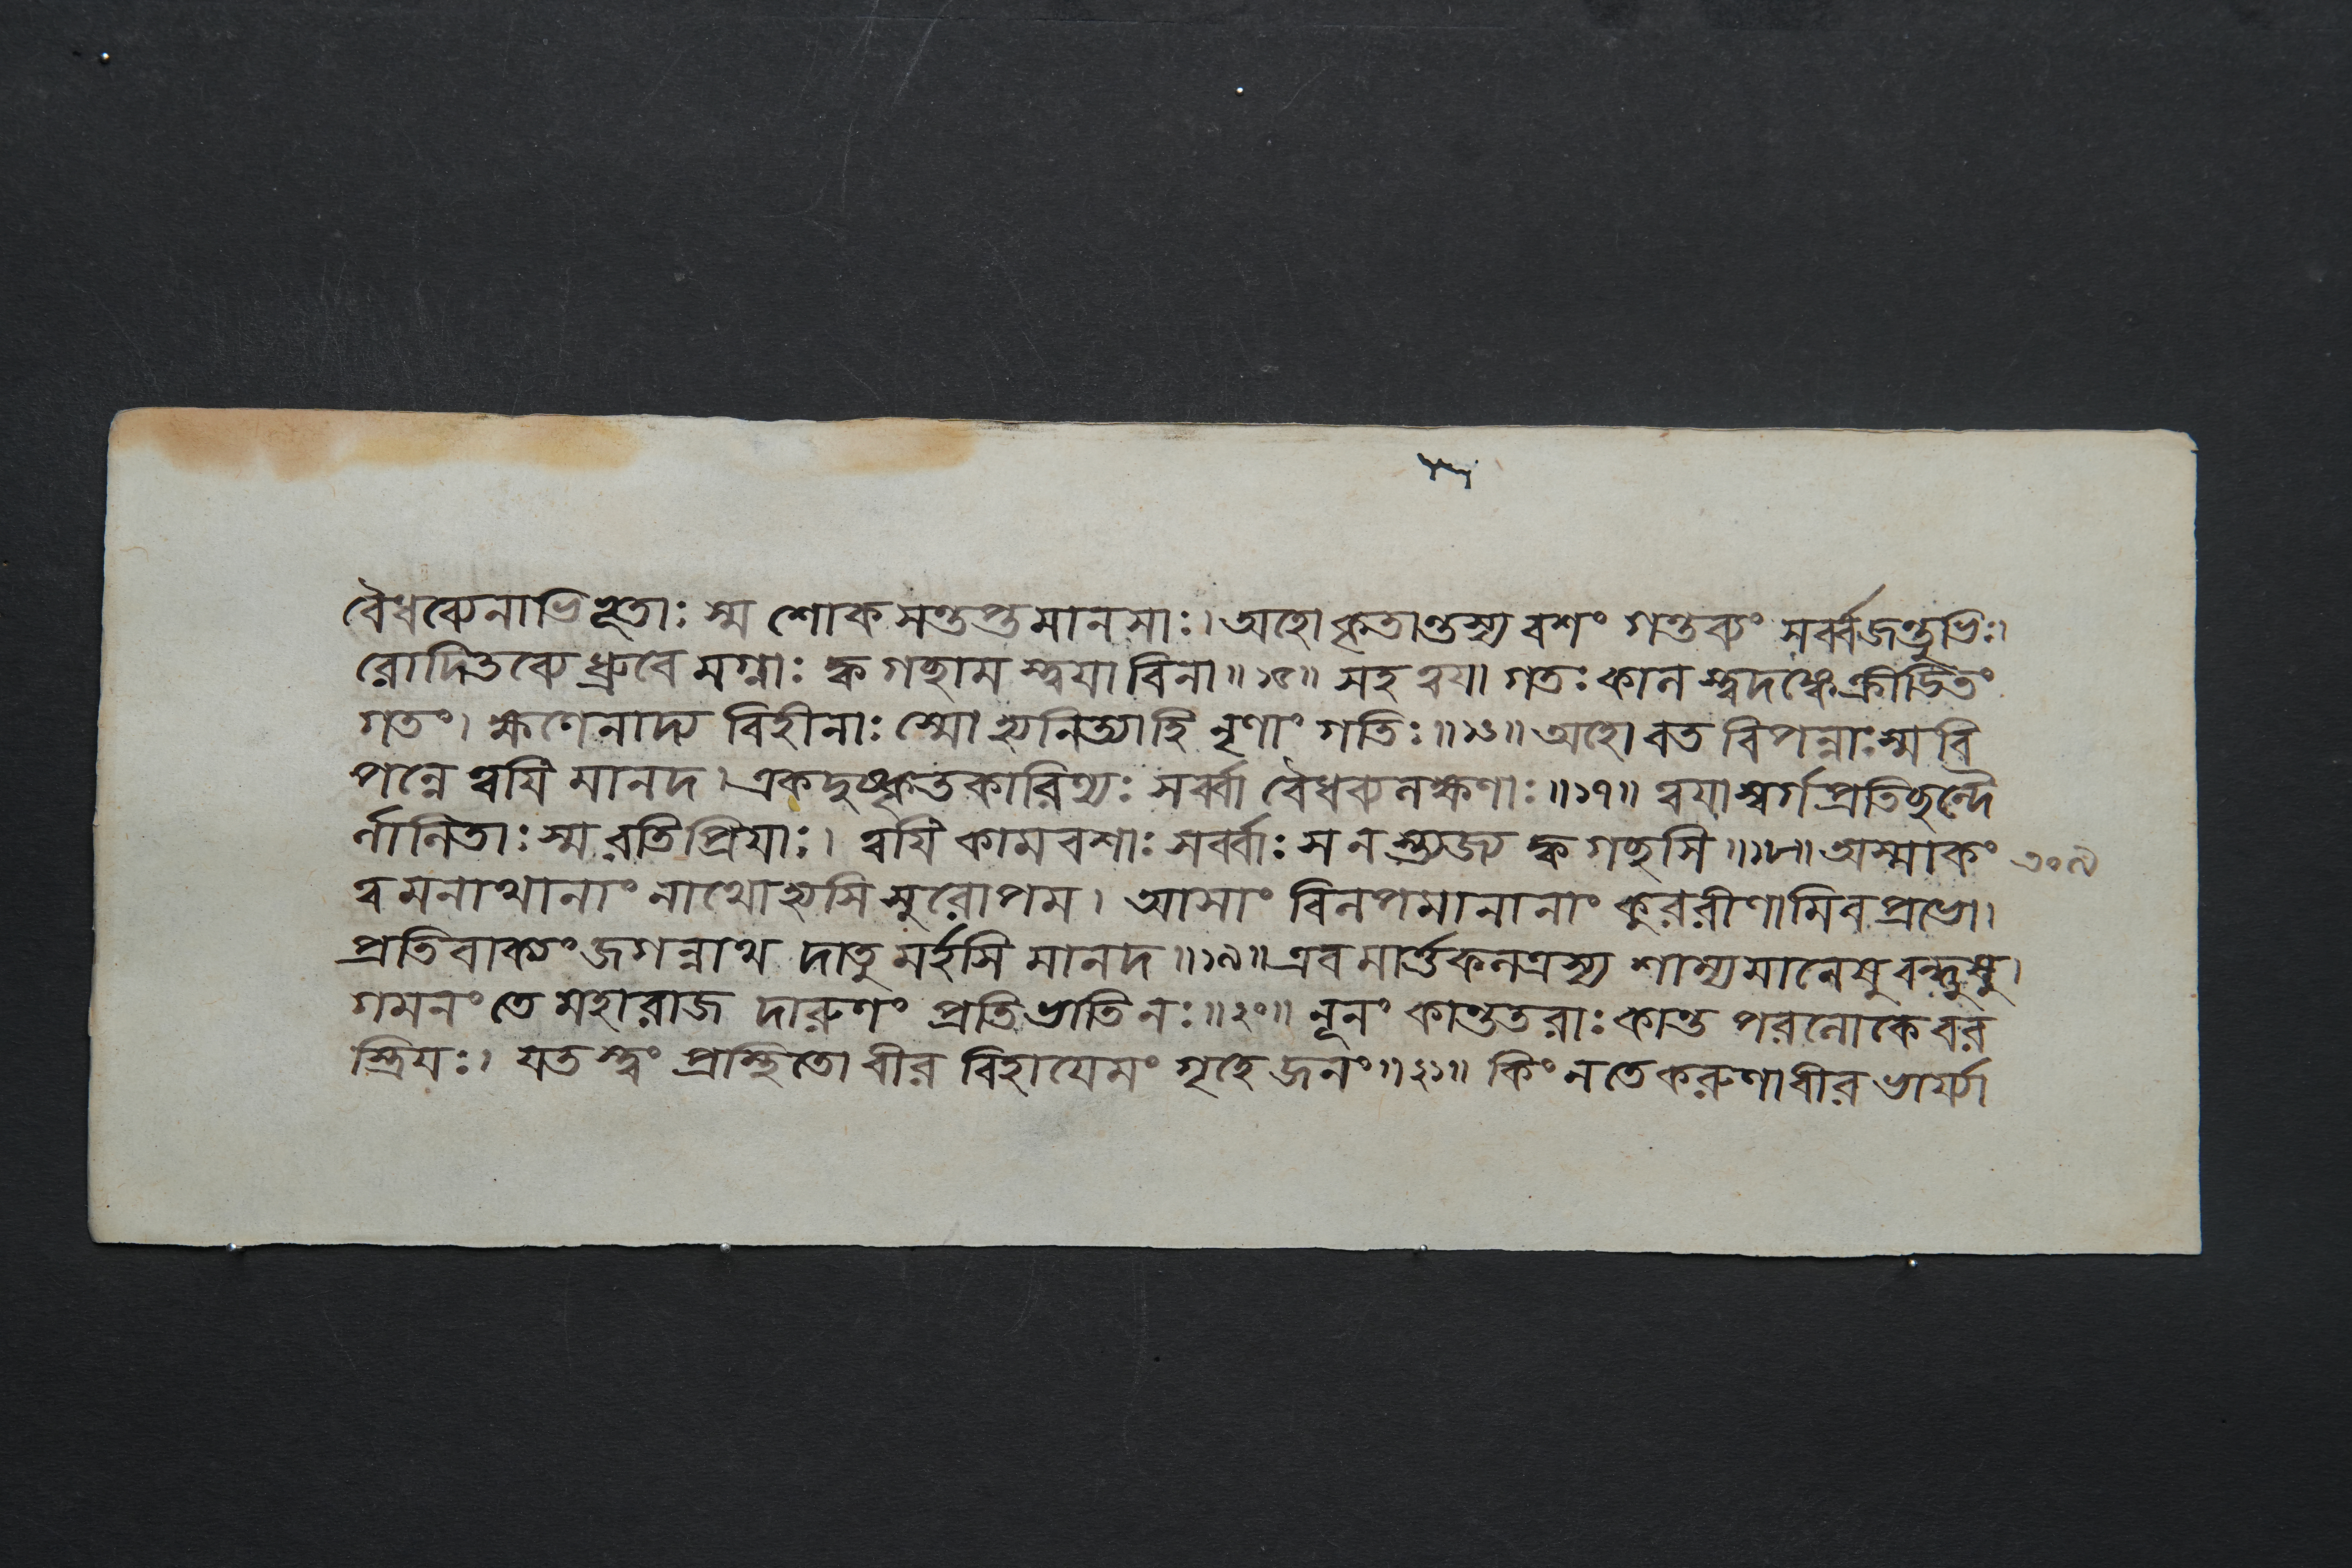 বৈধব্যেনাভিভূতাঃ স্ম শোকসন্তপ্তমানসাঃ। অহো কৃতান্তস্য বশং গন্তব্যং সর্ব্বজন্তুভিঃ।
রোদিতব্যে ধ্রুবে মগ্নাঃ ক্ব গচ্ছাম স্ত্বয়া বিনা॥১৫॥ সহ ত্বয়া গতঃ কাল স্ত্বদঙ্কে ক্রীড়িতং
গতং। ক্ষণেনাদ্য বিহীনাঃ স্মো হ্যনিত্যাহি নৃণাং গতিঃ॥১৬॥ অহো বত বিপন্নাঃ স্ম বি
পন্নে ত্বয়ি মানদ। একদুষ্কৃতকারিণ্যঃ সর্ব্বা বৈধব্যলক্ষণাঃ॥১৭॥ ত্বয়া স্বর্গপ্রতিচ্ছন্দৈ
র্লালিতাঃ স্ম রতিপ্রিয়াঃ। ত্বয়ি কামবশাঃ সর্ব্বাঃ স ন স্ত্যজ্য ক্ব গচ্ছসি॥১৮॥ অস্মাকং
ত্বমনাথানাং নাথো হ্যসি সুরোপম। আসাং বিলপমানানাং কুররীণামিব প্রভো।
প্রতিবাক্যং জগন্নাথ দাতুমর্হসি মানদ॥১৯॥ এবমার্ত্তকলত্রস্য শাম্যমানেষু বন্ধুষু।
গমনং তে মহারাজ দারুণং প্রতিভাতি নঃ॥২০॥ নূনং কান্ততরাঃ কান্ত পরলোকে বর
স্ত্রিয়ঃ। যত স্ত্বং প্রস্থিতো বীর বিহায়েমং গৃহে জনং॥২১॥ কিং ন তে করুণা বীর ভার্য্যা
৩০৯